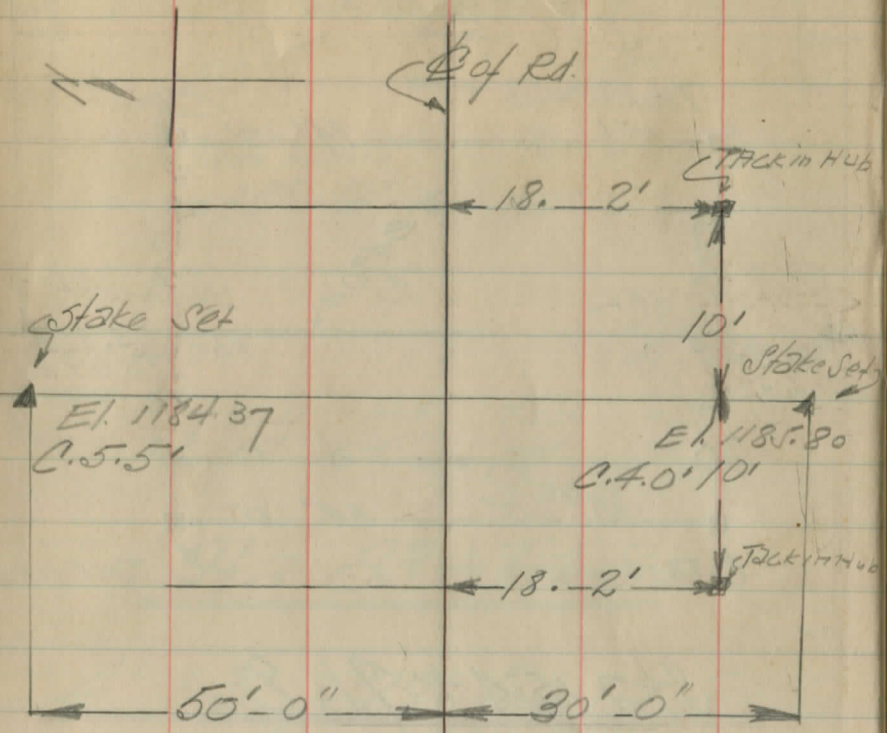 ℄ of Rd.
Tack in Hub
18. 2'
Stake Set
10'
Stake Set
El. 1184.37
C.5.5'
El. 1185.80
C.4.0'
10'
18.-2'
Tack in Hub
50'-0"
30'-0"